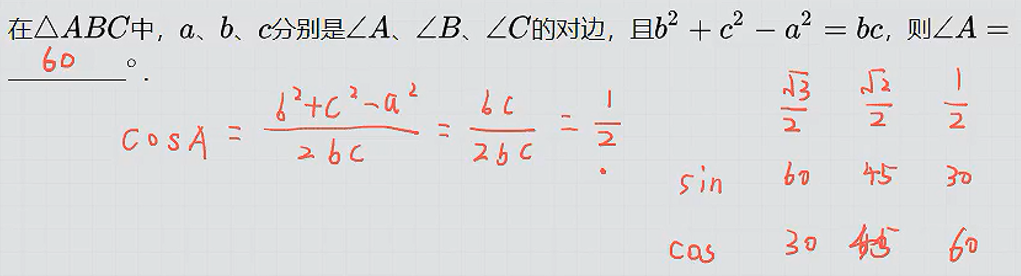 在△ABC中，a、b、c分别是∠A、∠B、∠C的对边，且b²+c²−a²=bc，则∠A=
60°.
cosA = (b²+c²−a²)/(2bc) = bc/(2bc) = 1/2.
√3/2 √2/2 1/2
sin 60 45 30
cos 30 45 60